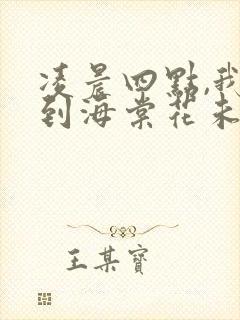 凌晨四點,我
到海棠花未
王某寶